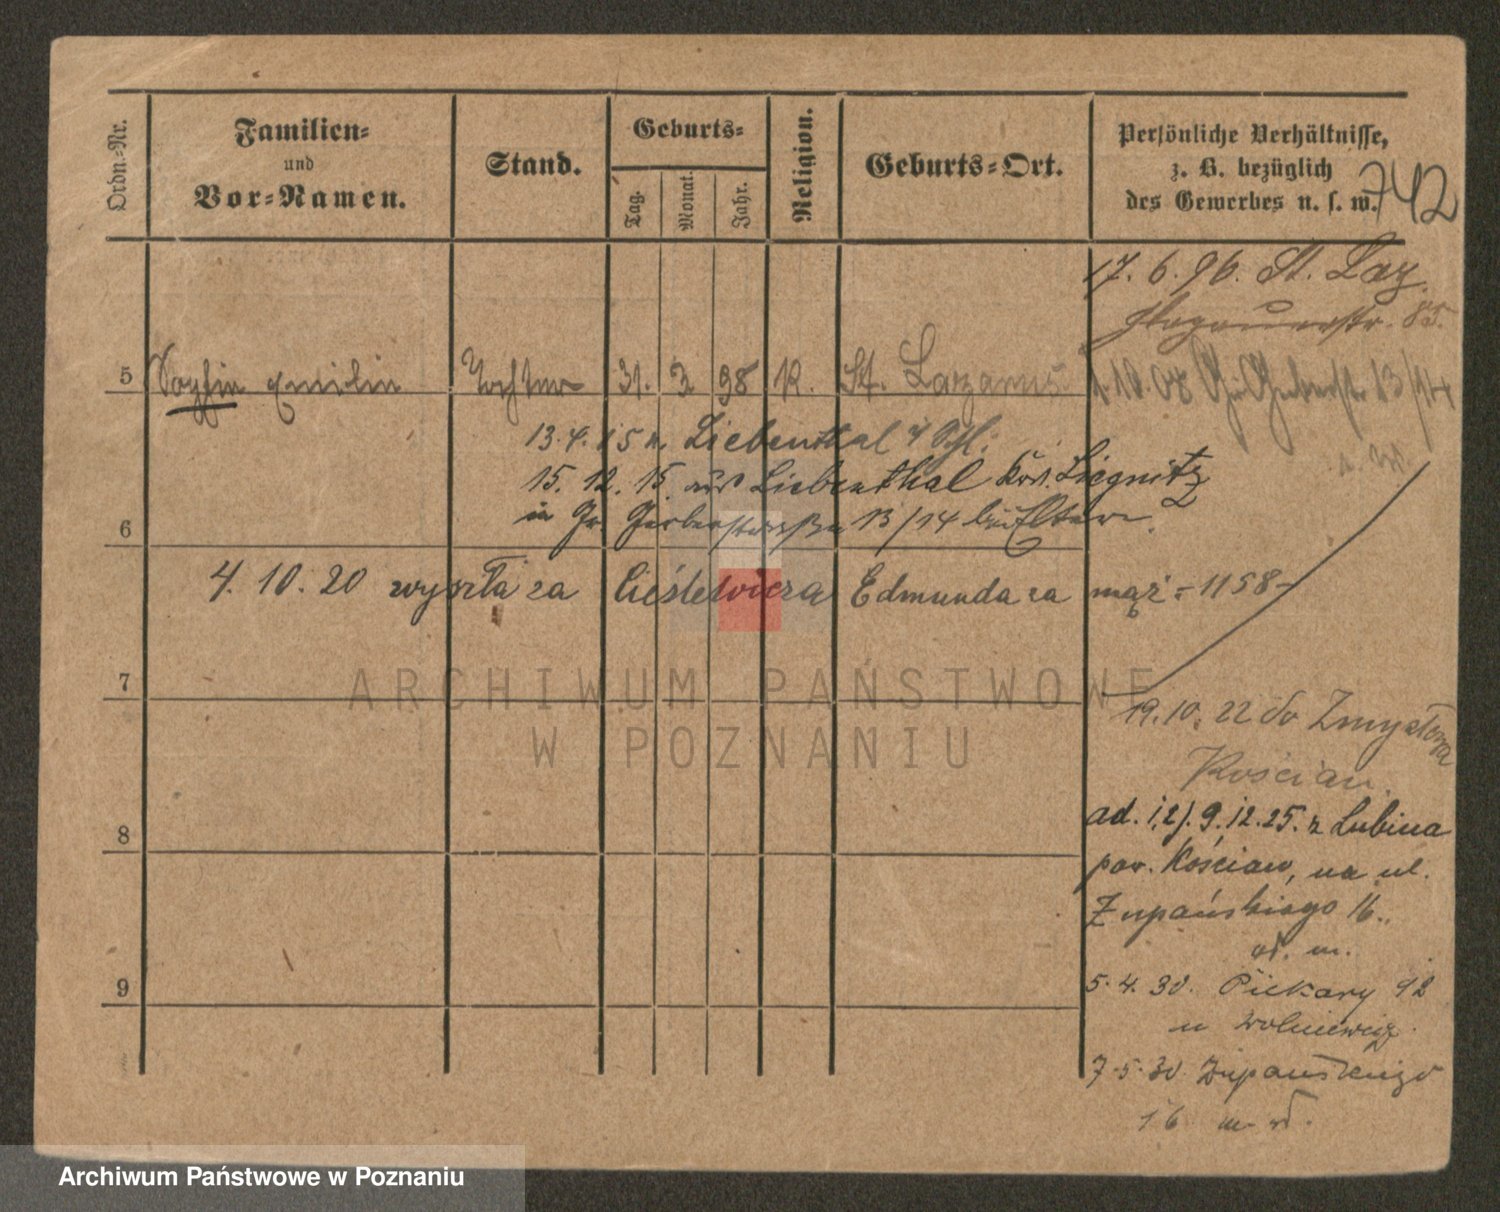 Ordn.-Nr.
Familien-
und
Vor-Namen.
Stand.
Geburts-
Tag.
Monat.
Jahr.
Religion.
Geburts-Ort.
Persönliche Verhältnisse,
z. B. bezüglich
des Gewerbes u. s. w.
742
17. 6. 96. St. Laz.
Glogauerstr. 85.
5 Sophie Emilie Tochter 31. 3 98 K. St. Lazarus
1.10.07 Gr Gerberstr. 13/14
13. 4. 15 n. Liebenthal i/Schl.
15. 12. 15. aus Liebenthal Krs. Liegnitz
in Gr. Gerberstraße 13/14 bei Eltern.
6
4. 10. 20 wyszła za Cieślewicza Edmunda za mąż = 1158 -
7
19. 10. 22 do Zmysłowa
Kościan.
8
ad. 1,2). 9. 12. 25. z Lubina
pow. Kościan, na ul.
Żupańskiego 16.
9
5. 4. 30. Piekary 12
u Wolniewicz.
7. 5. 30 Żupańskiego
16
ARCHIWUM PAŃSTWOWE
W POZNANIU
Archiwum Państwowe w Poznaniu